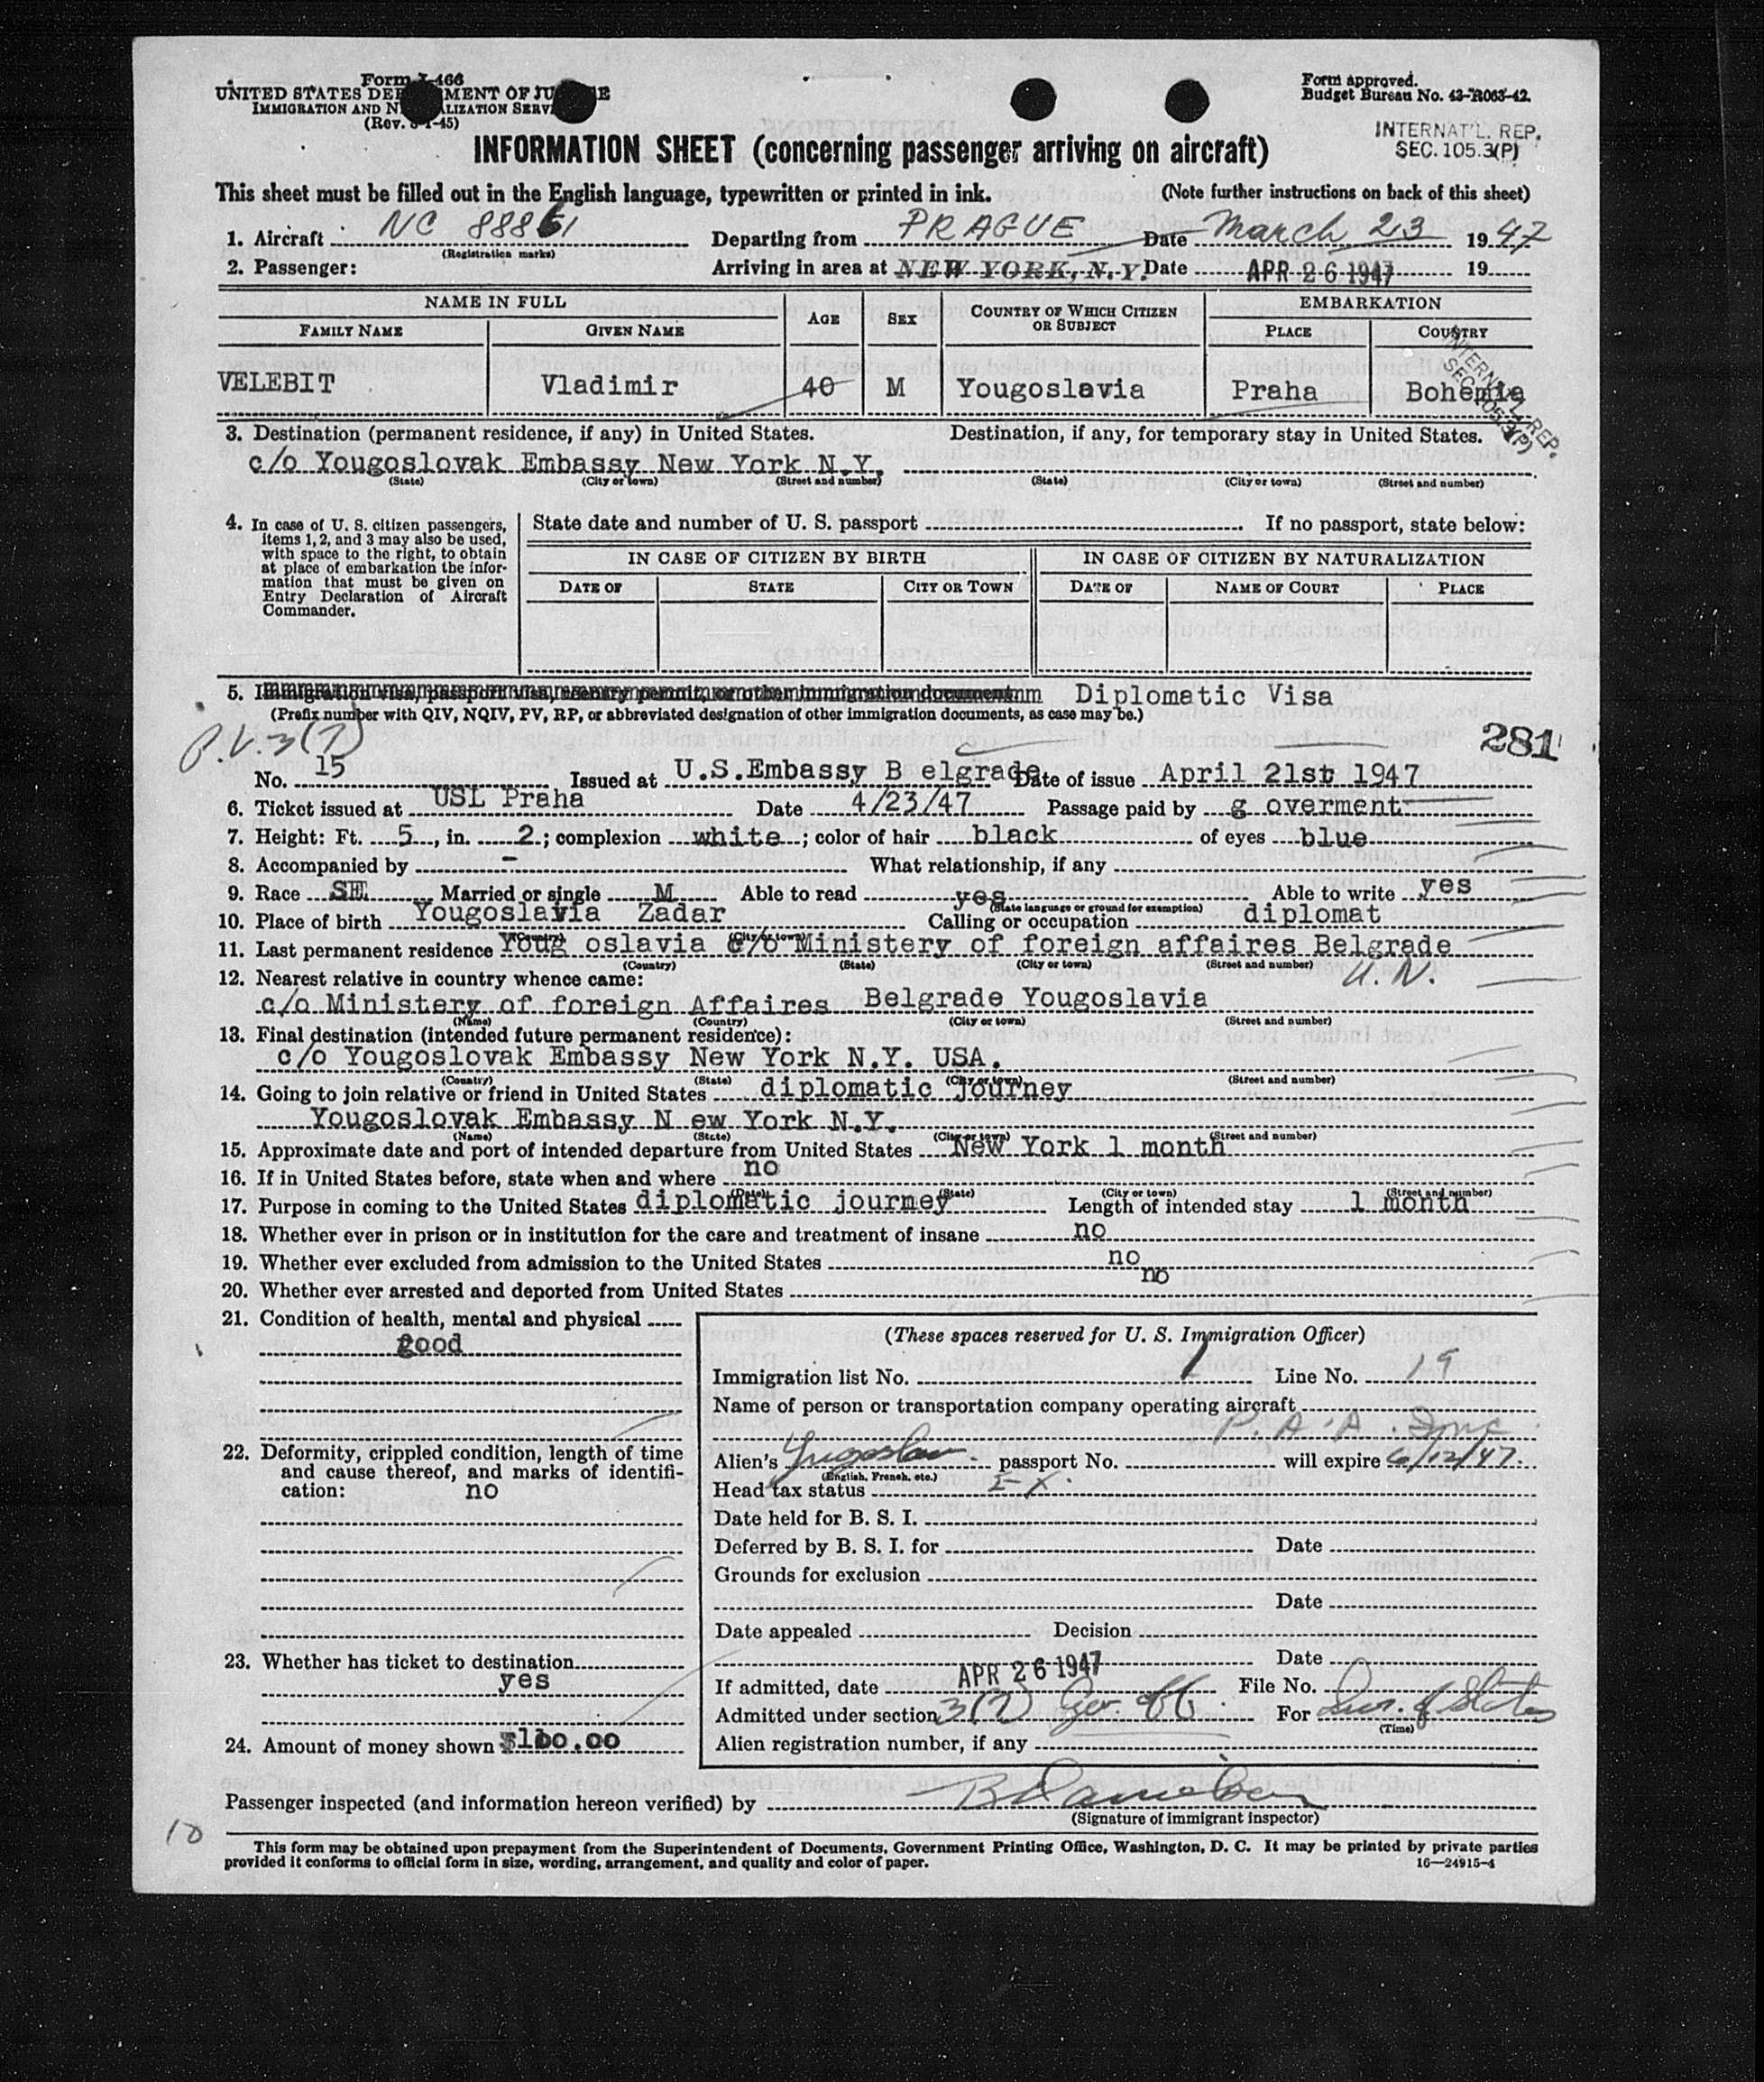 Form I-466
UNITED STATES DEPARTMENT OF JUSTICE
IMMIGRATION AND NATURALIZATION SERVICE
(Rev. 8-1-45)
Form approved.
Budget Bureau No. 43-R063-42.
INTERNAT'L. REP.
SEC. 105.3(P)
INFORMATION SHEET (concerning passenger arriving on aircraft)
This sheet must be filled out in the English language, typewritten or printed in ink. (Note further instructions on back of this sheet)
1. Aircraft NC 88861 Departing from PRAGUE Date March 23 1947
(Registration marks)
2. Passenger: Arriving in area at NEW YORK, N.Y. Date APR 26 1947 19
NAME IN FULL AGE SEX COUNTRY OF WHICH CITIZEN OR SUBJECT EMBARKATION
FAMILY NAME GIVEN NAME PLACE COUNTRY
VELEBIT Vladimir 40 M Yougoslavia Praha Bohemia
INTERNAT'L. REP.
SEC. 105.3(P)
3. Destination (permanent residence, if any) in United States. Destination, if any, for temporary stay in United States.
c/o Yougoslovak Embassy New York N.Y.
(State) (City or town) (Street and number) (State) (City or town) (Street and number)
4. In case of U. S. citizen passengers, items 1, 2, and 3 may also be used, with space to the right, to obtain at place of embarkation the information that must be given on Entry Declaration of Aircraft Commander.
State date and number of U. S. passport If no passport, state below:
IN CASE OF CITIZEN BY BIRTH IN CASE OF CITIZEN BY NATURALIZATION
DATE OF STATE CITY OR TOWN DATE OF NAME OF COURT PLACE
5. Immigration visa, passport visa, reentry permit, or other immigration document Diplomatic Visa
(Prefix number with QIV, NQIV, PV, RP, or abbreviated designation of other immigration documents, as case may be.)
P.V. 3(7)
281
No. 15 Issued at U.S.Embassy B elgrade Date of issue April 21st 1947
6. Ticket issued at USL Praha Date 4/23/47 Passage paid by g overment
7. Height: Ft. 5, in. 2; complexion white; color of hair black of eyes blue
8. Accompanied by - What relationship, if any
9. Race SE Married or single M Able to read yes Able to write yes
(State language or ground for exemption)
10. Place of birth Yougoslavia Zadar Calling or occupation diplomat
(Country) (City or town)
11. Last permanent residence Youg oslavia c/o Ministery of foreign affaires Belgrade
(Country) (State) (City or town) (Street and number)
U.N.
12. Nearest relative in country whence came:
c/o Ministery of foreign Affaires Belgrade Yougoslavia
(Name) (Country) (City or town) (Street and number)
13. Final destination (intended future permanent residence):
c/o Yougoslovak Embassy New York N.Y. USA.
(Country) (State) (City or town) (Street and number)
14. Going to join relative or friend in United States diplomatic journey
Yougoslovak Embassy N ew York N.Y.
(Name) (State) (City or town) (Street and number)
15. Approximate date and port of intended departure from United States New York 1 month
16. If in United States before, state when and where no
(Date) (State) (City or town) (Street and number)
17. Purpose in coming to the United States diplomatic journey Length of intended stay 1 month
18. Whether ever in prison or in institution for the care and treatment of insane no
19. Whether ever excluded from admission to the United States no
20. Whether ever arrested and deported from United States no
21. Condition of health, mental and physical
good
22. Deformity, crippled condition, length of time and cause thereof, and marks of identification: no
23. Whether has ticket to destination
yes
24. Amount of money shown $100.00
(These spaces reserved for U. S. Immigration Officer)
Immigration list No. 1 Line No. 19
Name of person or transportation company operating aircraft
P.A.A. Inc
Alien's Yugoslav passport No. will expire 6/12/47.
(English, French, etc.)
Head tax status Ex.
Date held for B. S. I.
Deferred by B. S. I. for Date
Grounds for exclusion
Date
Date appealed Decision
Date
If admitted, date APR 26 1947 File No.
Admitted under section 3(7) Gov. Off. For Dur. of Status
(Time)
Alien registration number, if any
Passenger inspected (and information hereon verified) by
(Signature of immigrant inspector)
10
This form may be obtained upon prepayment from the Superintendent of Documents, Government Printing Office, Washington, D. C. It may be printed by private parties
provided it conforms to official form in size, wording, arrangement, and quality and color of paper. 16—24915-4